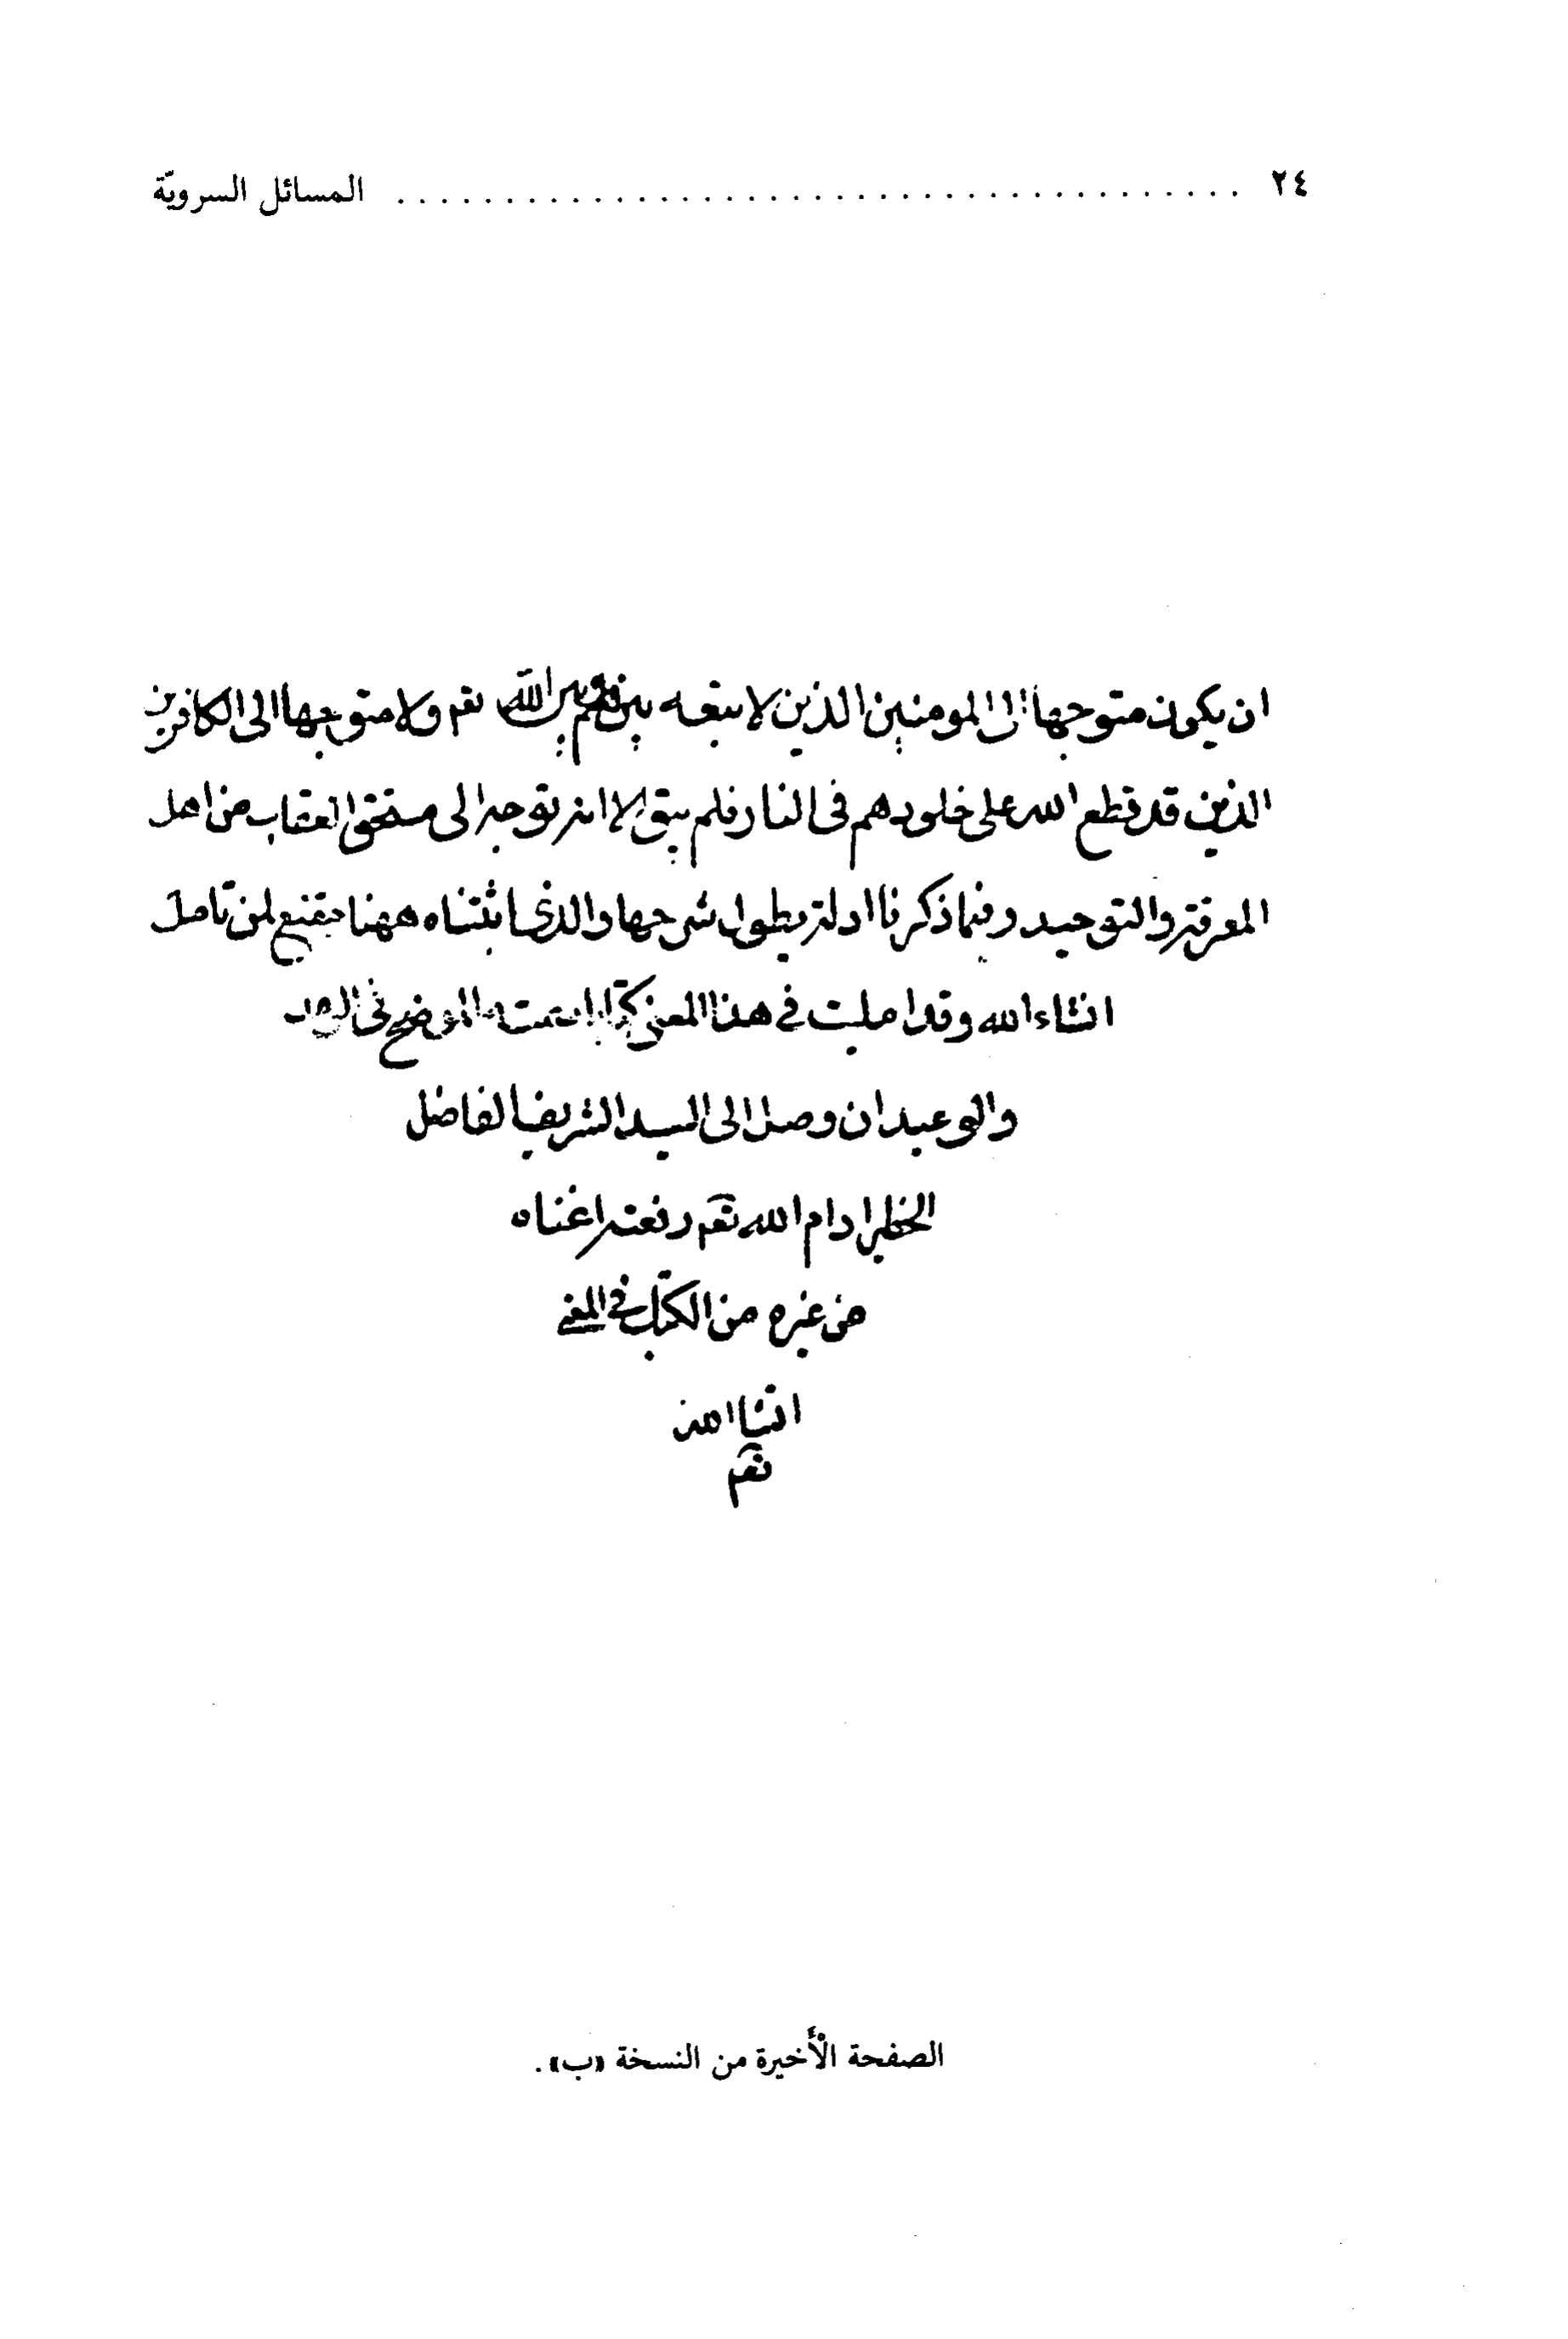 ٢٤ ........................................ المسائل السرويّة
ان يكون متوجها الى المومنين الذين لا تبعه بينهم وبين الله تعم ولا متوجها الى الكافرين
الذين قد قطع الله على خلودهم فى النار فلم يبق الا انه توجه الى مستحق العقاب من اهل
المعرفة والتوحيد وفيما ذكرنا ادلة يطول شرحها والذى اثبتناه ههنا مقنع لمن تامل
انشاء الله وقد امليت فى هذا المعنى كتابا سميته الموضح فى الوعد
والوعيد ان وصل الى السيد الشريف الفاضل
الخطير ادام الله تعم رفعته اغناه
من غيره من الكتب فى المعنى
انشا الله
تعم
الصفحة الأخيرة من النسخة «ب».